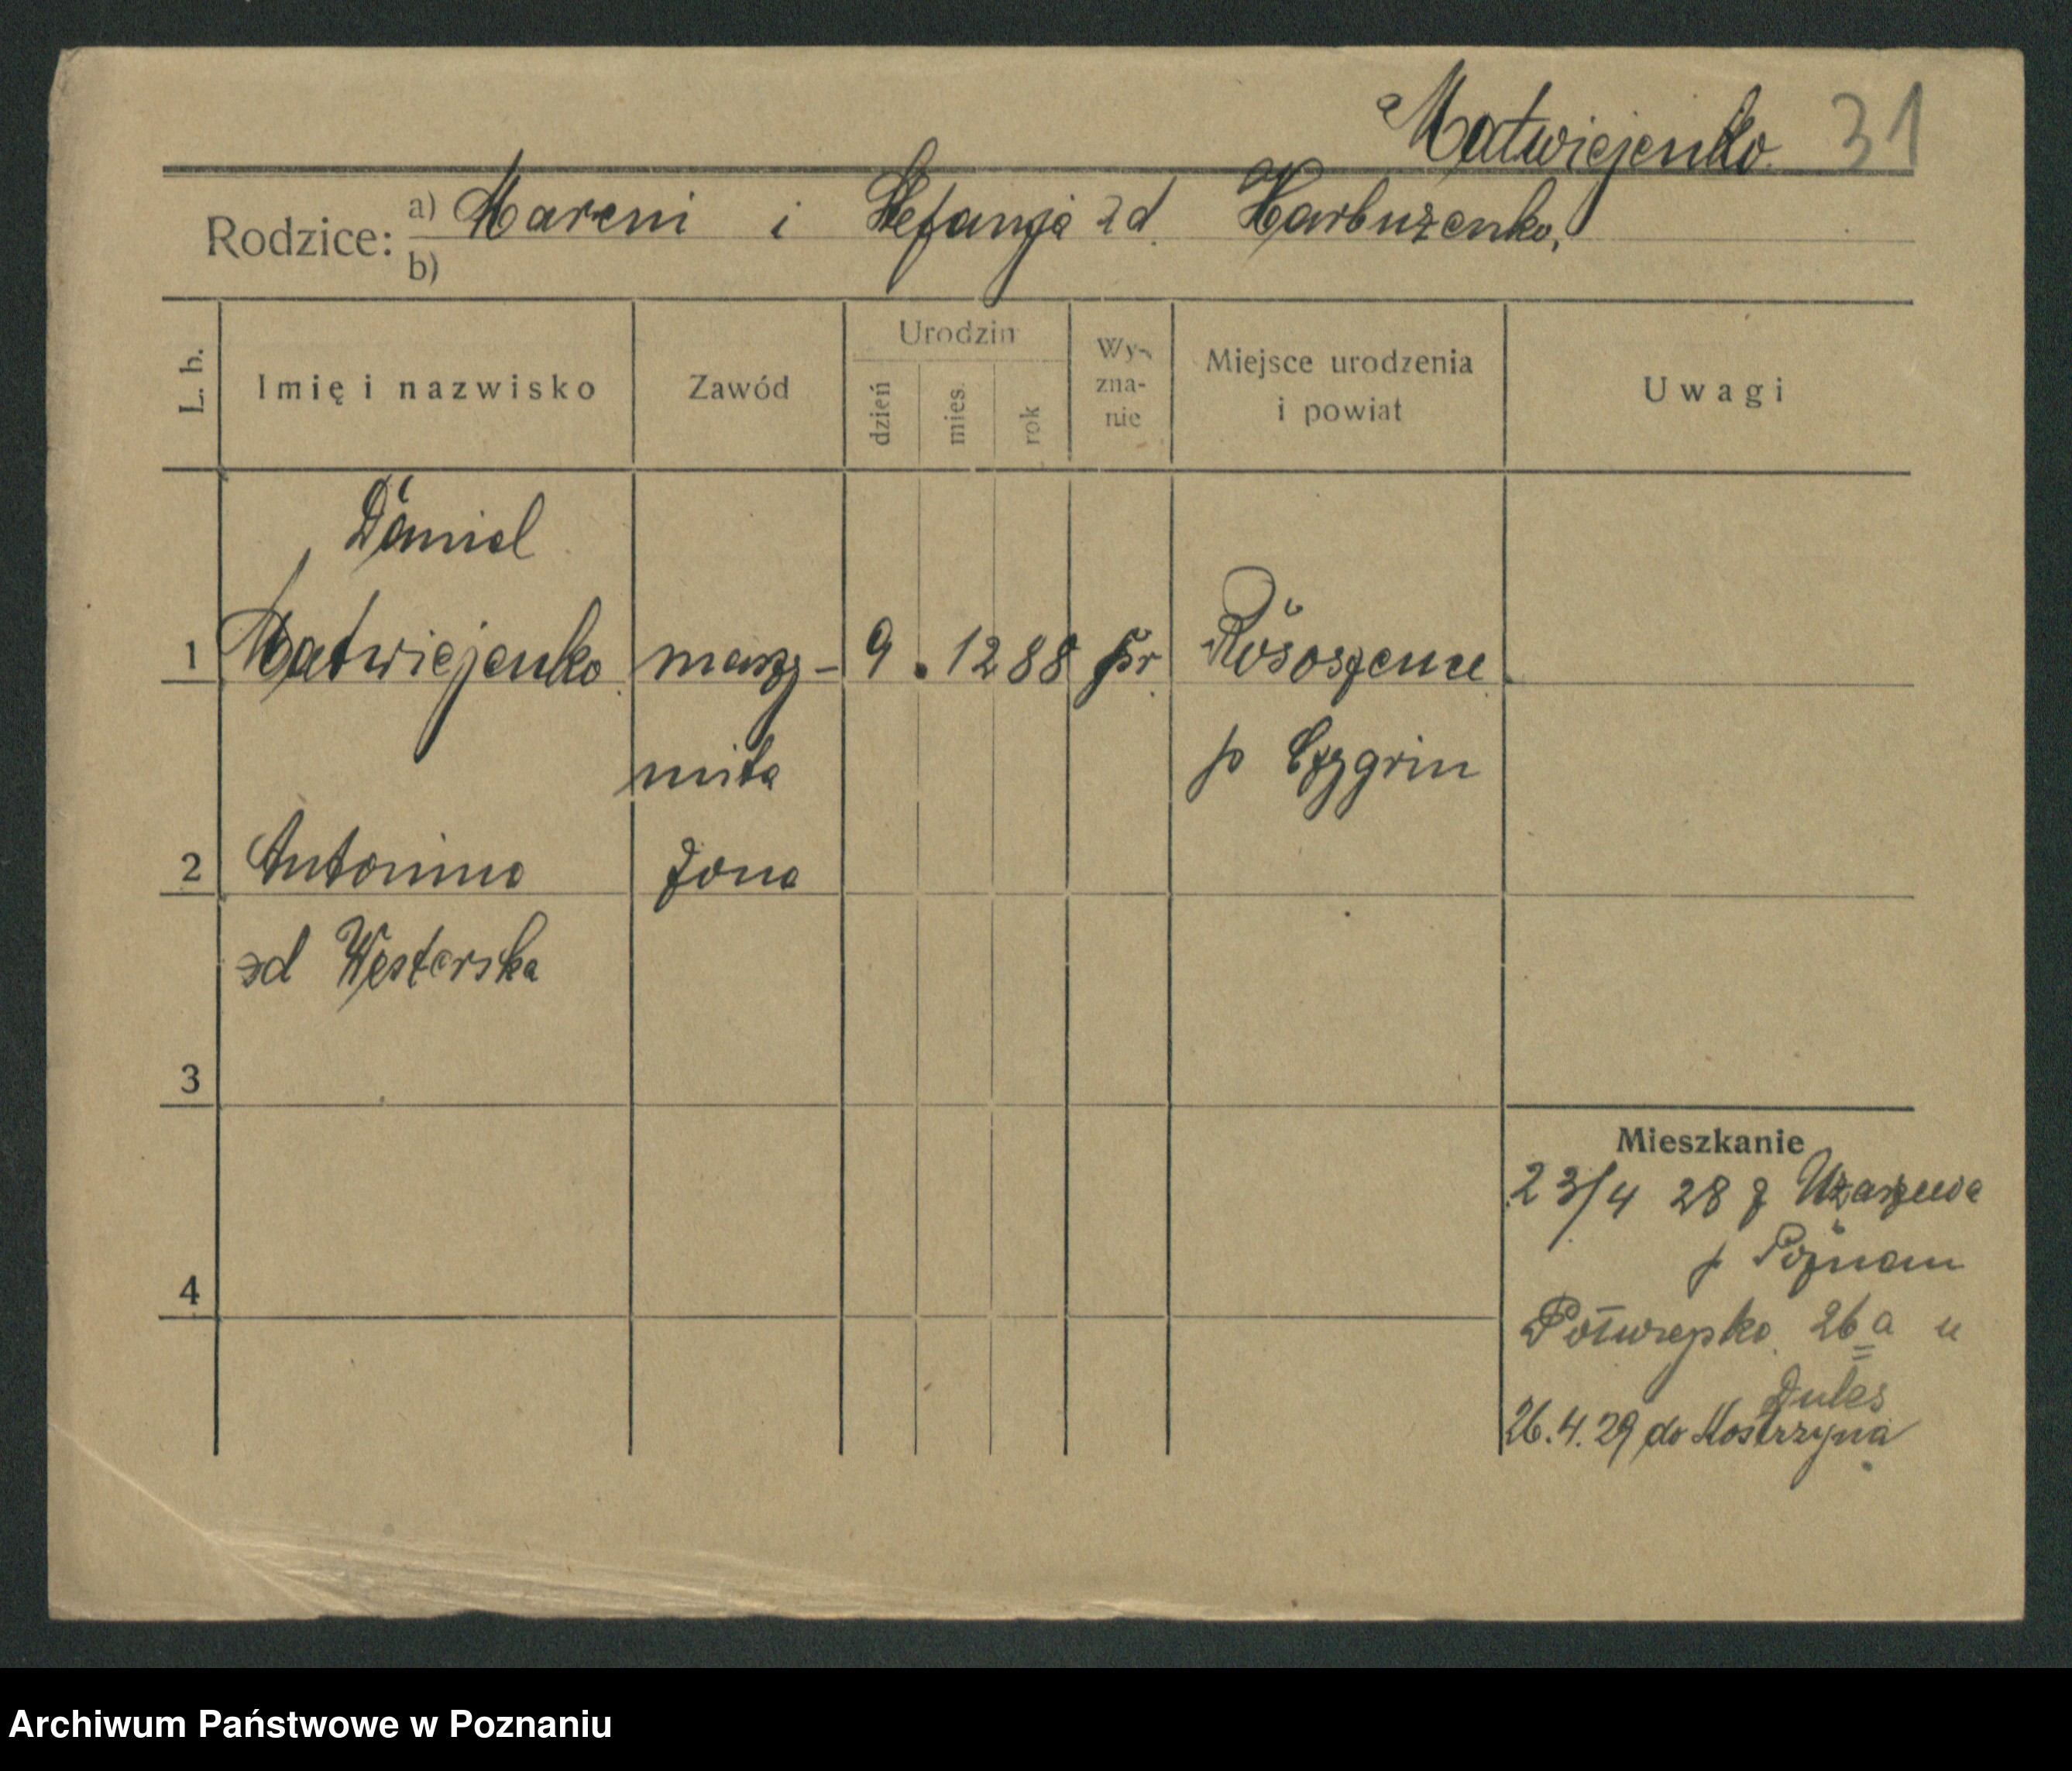 Matwiejenko 31
Rodzice: a) Mareni i Stefanja zd. Harbuzenko,
b)
L. b.
Imię i nazwisko
Zawód
Urodzin
dzień
mies.
rok
Wy-
zna-
nie
Miejsce urodzenia
i powiat
Uwagi
Daniel
1 Matwiejenko masz- 9. 12 88 pr Rososzence
nista p Czygrin
2 Antonina żona
zd Westerska
3
Mieszkanie
23/4 28 z Uzarzewa
p Poznań
4
Półwiejska 26a u
26.4.29 do Kostrzyna
Archiwum Państwowe w Poznaniu